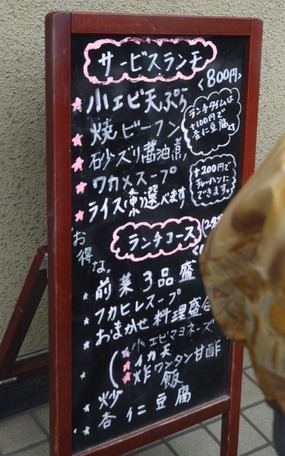 サービスランチ
<800円>
小エビ天ぷら
焼ビーフン
砂ズリ醤油煮
ワカメスープ
ライス
選べます
ランチタイムは
+100円で
杏仁豆腐
+200円で
チャーハンに
できます。
お得な。
ランチコース
前菜3品盛
フカヒレスープ
おまかせ料理盛合
小エビマヨネーズ
イカ天
炸ワンタン甘酢
炒飯
杏仁豆腐